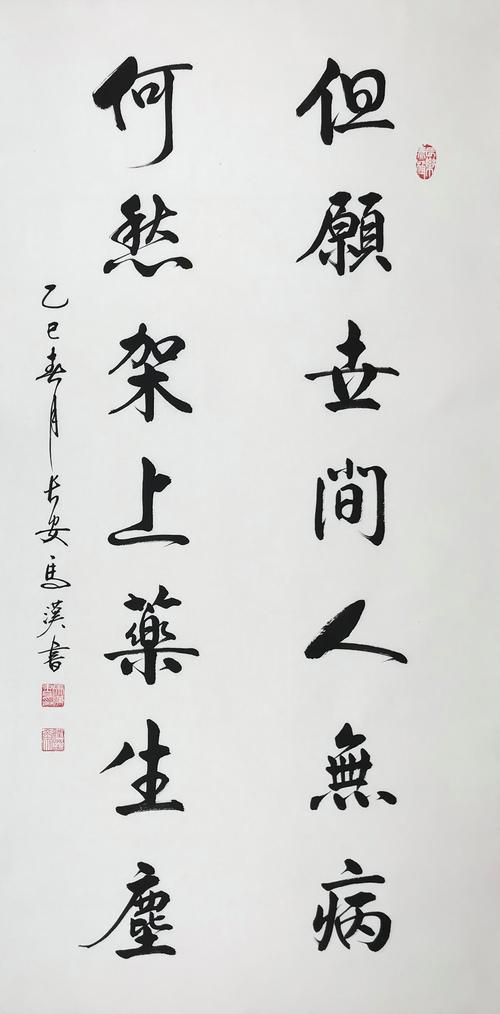 但願世間人無病
何愁架上藥生塵
乙巳春月長安馬漢書